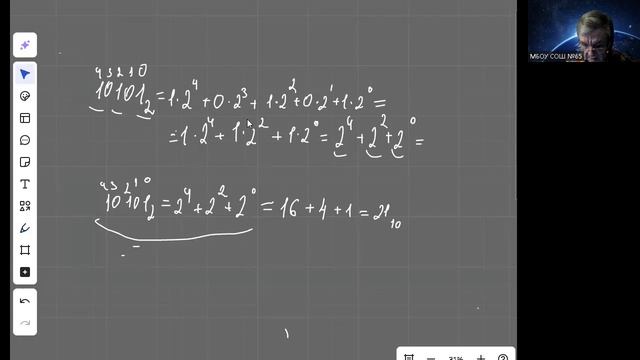 4 3 2 1 0
10101₂ = 1·2⁴ + 0·2³ + 1·2² + 0·2¹ + 1·2⁰ =
= 1·2⁴ + 1·2² + 1·2⁰ = 2⁴ + 2² + 2⁰ =
4 3 2 1 0
10101₂ = 2⁴ + 2² + 2⁰ = 16 + 4 + 1 = 21₁₀
МБОУ СОШ №65
T
31%